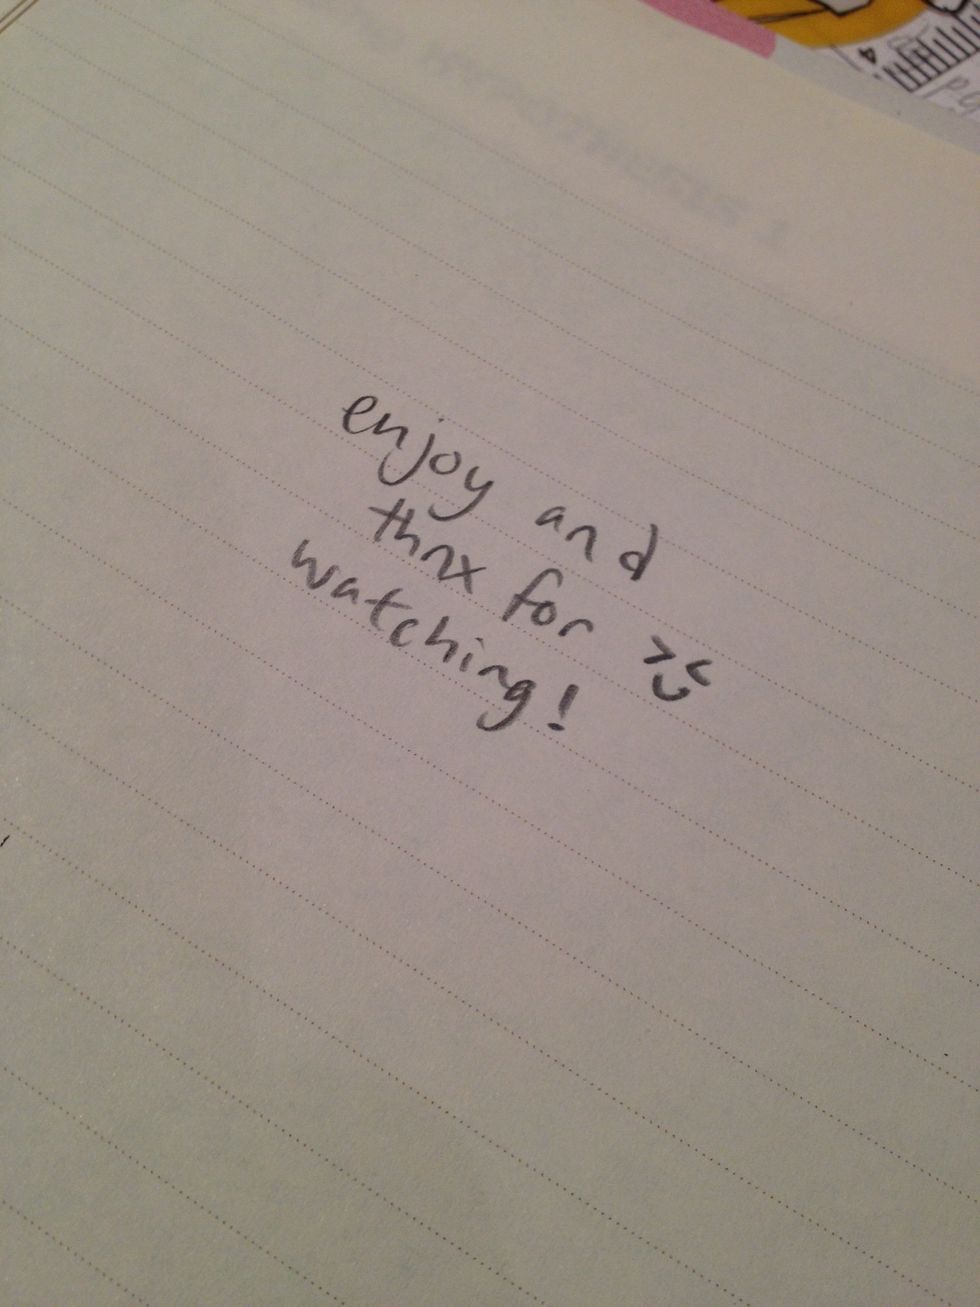 enjoy and
thnx for
watching!
4